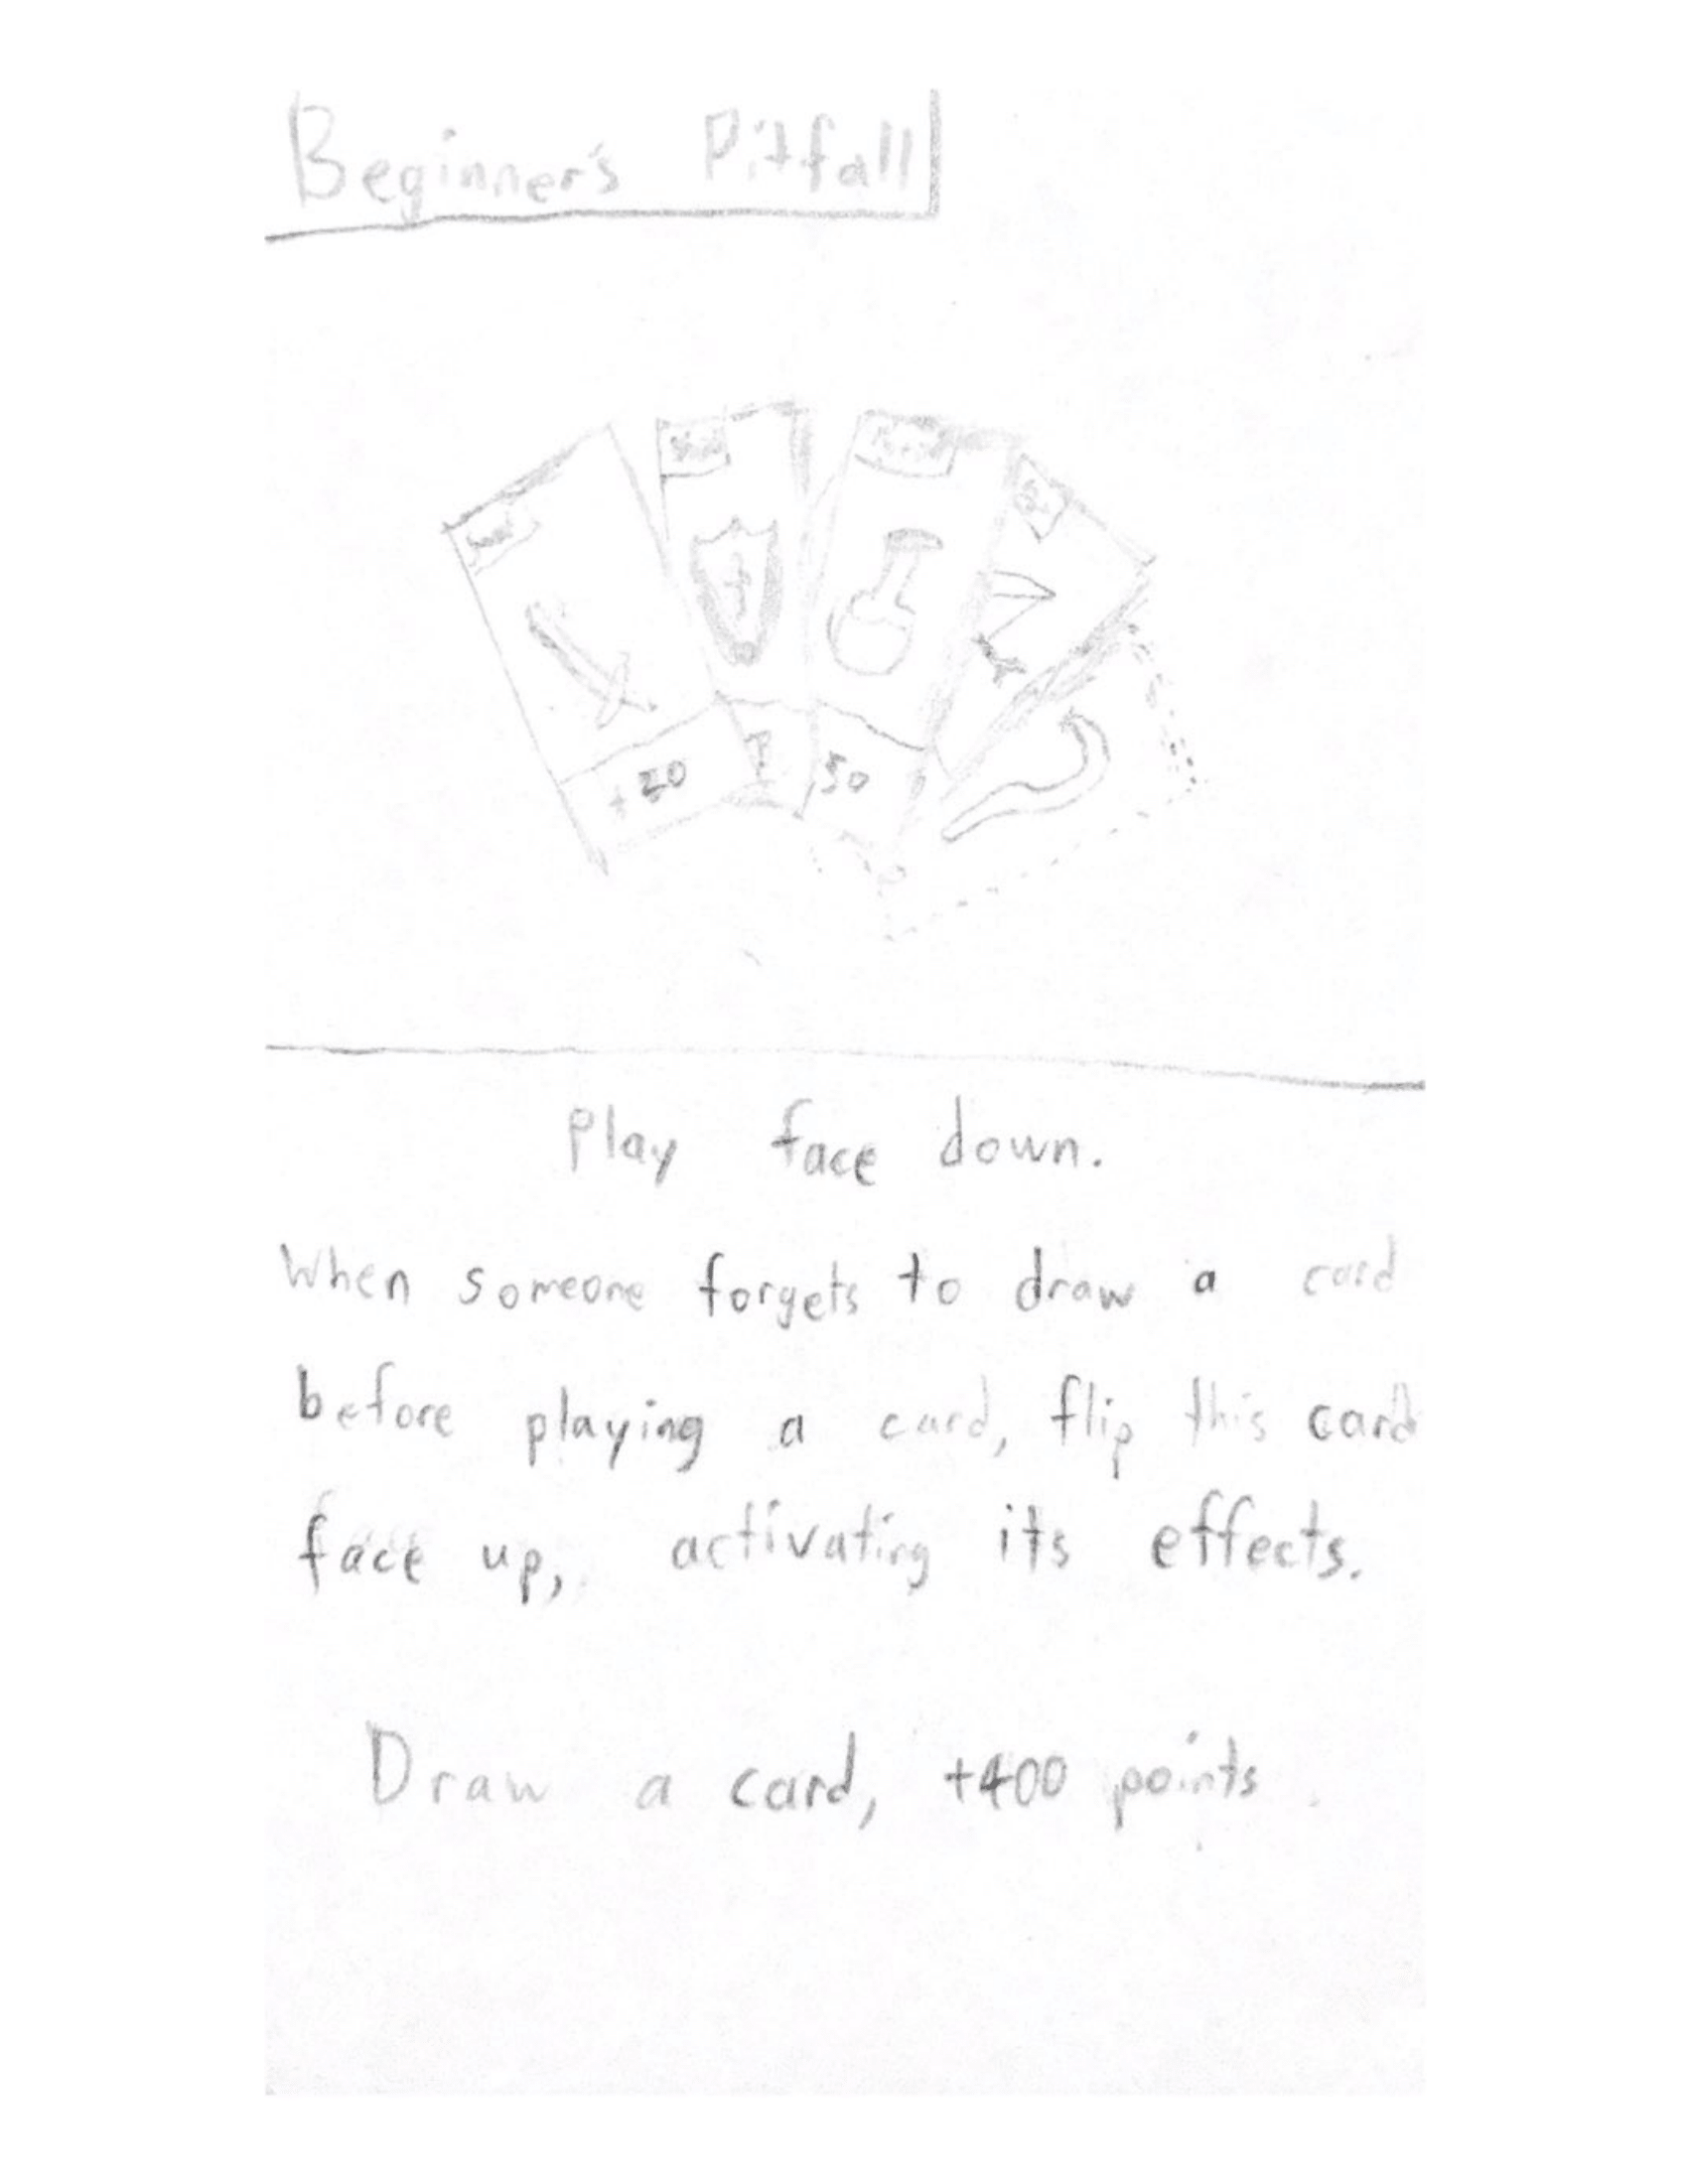 Beginner's Pitfall
+20
?
50
Play face down.
When someone forgets to draw a card
before playing a card, flip this card
face up, activating its effects.
Draw a card, +400 points.